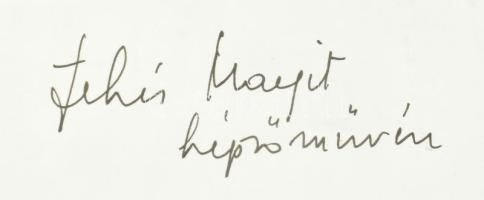 Fehér Margit
képzőművész